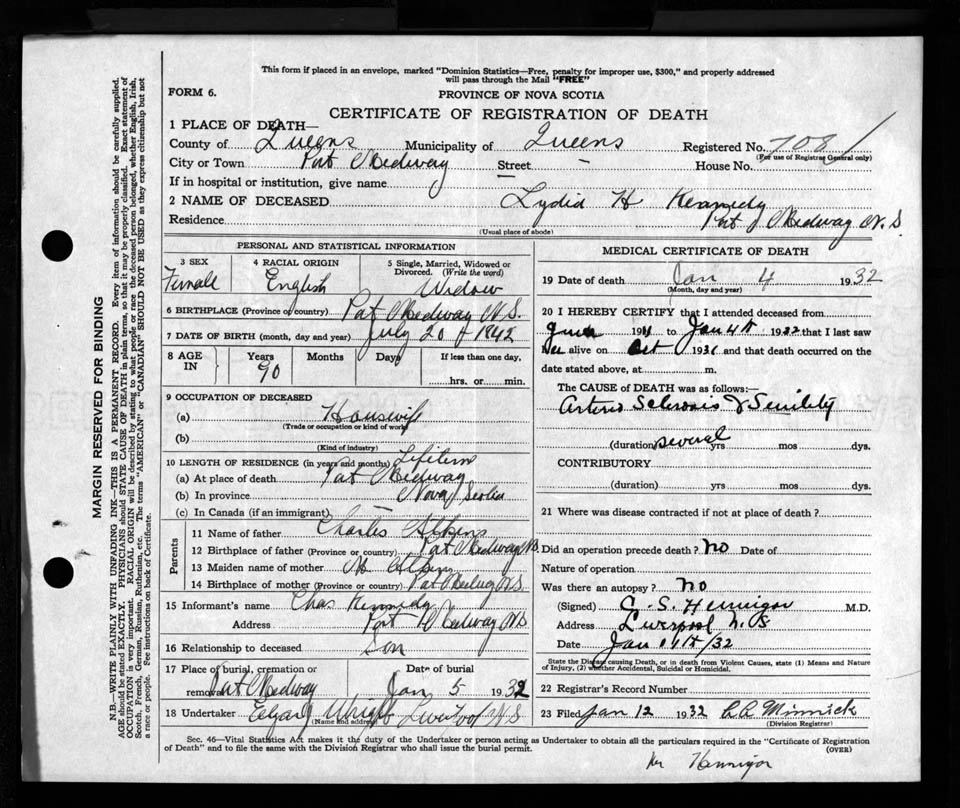 This form if placed in an envelope, marked "Dominion Statistics—Free, penalty for improper use, $300," and properly addressed
will pass through the Mail "FREE"
FORM 6.
PROVINCE OF NOVA SCOTIA
CERTIFICATE OF REGISTRATION OF DEATH
1 PLACE OF DEATH—
County of Queens Municipality of Queens Registered No. 7081
(For use of Registrar General only)
City or Town Port Medway Street — House No.
If in hospital or institution, give name —
2 NAME OF DECEASED Lydia H Kennedy
Residence Port Medway N.S.
(Usual place of abode)
PERSONAL AND STATISTICAL INFORMATION
3 SEX 4 RACIAL ORIGIN 5 Single, Married, Widowed or
Divorced. (Write the word)
Female English Widow
6 BIRTHPLACE (Province or country) Port Medway N.S.
7 DATE OF BIRTH (month, day and year) July 20 1842
8 AGE IN Years Months Days If less than one day,
90 hrs. or min.
9 OCCUPATION OF DECEASED
(a) Housewife
(Trade or occupation or kind of work)
(b)
(Kind of industry)
10 LENGTH OF RESIDENCE (in years and months) Lifetime
(a) At place of death Port Medway
(b) In province Nova Scotia
(c) In Canada (if an immigrant) —
Parents
11 Name of father Charles
12 Birthplace of father (Province or country) Port Medway NS.
13 Maiden name of mother
14 Birthplace of mother (Province or country) Port Medway N.S.
15 Informant's name Chas Kennedy
Address Port Medway NS
16 Relationship to deceased Son
17 Place of burial, cremation or Date of burial
removal Port Medway Jan 5 1932
18 Undertaker Wright Liverpool NS
(Name and address)
MEDICAL CERTIFICATE OF DEATH
19 Date of death Jan 4 1932
(Month, day and year)
20 I HEREBY CERTIFY that I attended deceased from
19 to Jan 4th 1932 that I last saw
her alive on Oct 1931 and that death occurred on the
date stated above, at m.
The CAUSE OF DEATH was as follows:
Arterio Sclerosis & Senility
(duration) several yrs mos dys.
CONTRIBUTORY
(duration) yrs mos dys.
21 Where was disease contracted if not at place of death?
Did an operation precede death? No Date of
Nature of operation
Was there an autopsy? No
(Signed) C. S. Hennigar M.D.
Address Liverpool N.S
Date Jan 11th/32
State the Disease causing Death, or in death from Violent Causes, state (1) Means and Nature
of Injury, (2) whether Accidental, Suicidal or Homicidal.
22 Registrar's Record Number
23 Filed Jan 12 1932 Minnick
(Division Registrar)
Sec. 46—Vital Statistics Act makes it the duty of the Undertaker or person acting as Undertaker to obtain all the particulars required in the "Certificate of Registration
of Death" and to file the same with the Division Registrar who shall issue the burial permit.
(OVER)
Hennigar
MARGIN RESERVED FOR BINDING
N.B.—WRITE PLAINLY WITH UNFADING INK—THIS IS A PERMANENT RECORD. Every item of information should be carefully supplied.
AGE should be stated EXACTLY. PHYSICIANS should STATE CAUSE OF DEATH in plain terms, so that it may be properly classified. Exact statement of
OCCUPATION is very important. RACIAL ORIGIN will be described by stating to what people or race the deceased person belonged, whether English, Irish,
Scotch, French, German, Russian, Ruthenian, etc. The terms "AMERICAN" or "CANADIAN" SHOULD NOT BE USED as they express citizenship but not
a race or people. See instructions on back of Certificate.